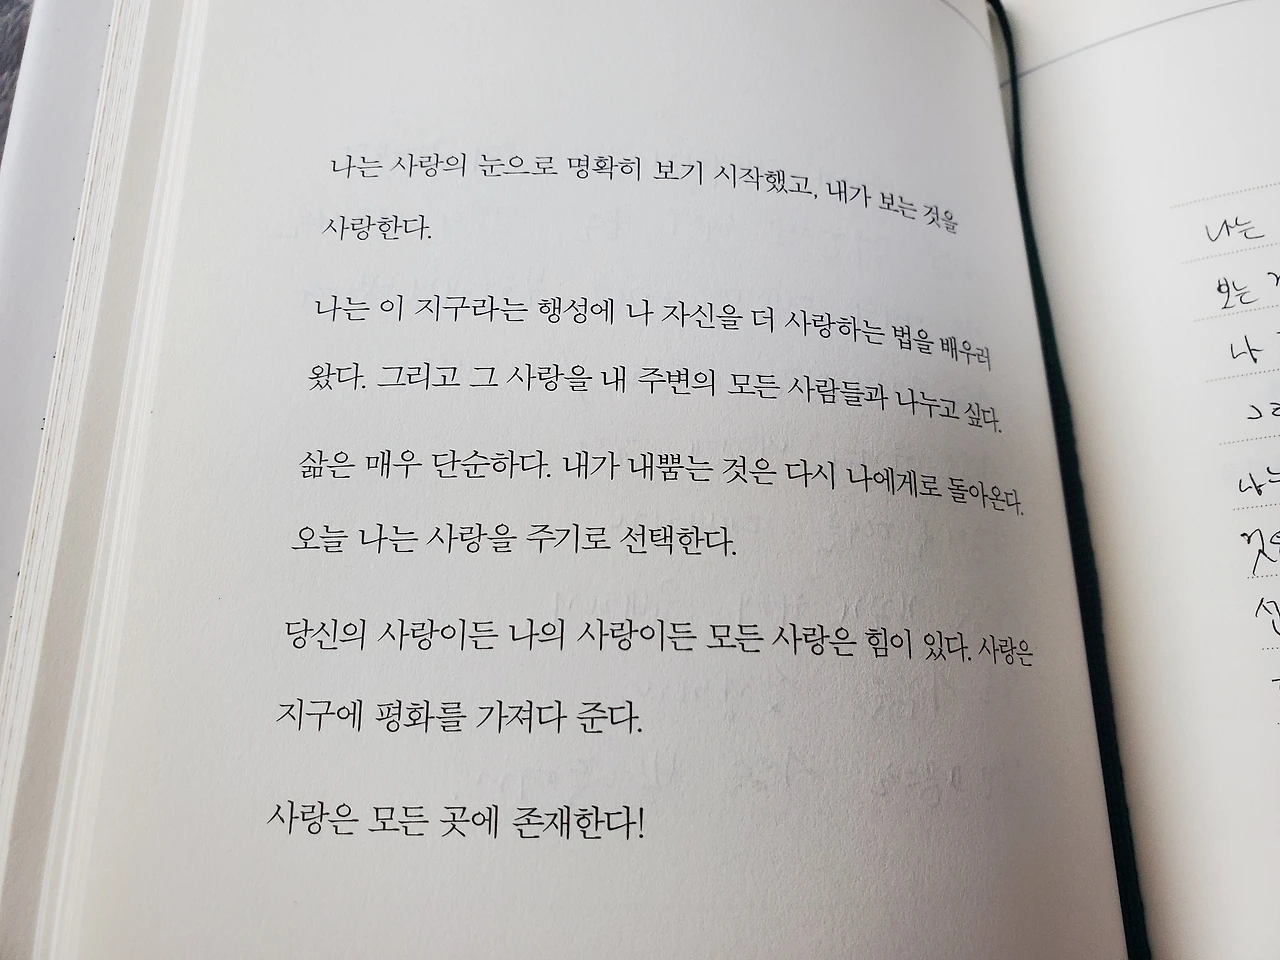 나는 사랑의 눈으로 명확히 보기 시작했고, 내가 보는 것을
사랑한다.
나는 이 지구라는 행성에 나 자신을 더 사랑하는 법을 배우러
왔다. 그리고 그 사랑을 내 주변의 모든 사람들과 나누고 싶다.
삶은 매우 단순하다. 내가 내뿜는 것은 다시 나에게로 돌아온다.
오늘 나는 사랑을 주기로 선택한다.
당신의 사랑이든 나의 사랑이든 모든 사랑은 힘이 있다. 사랑은
지구에 평화를 가져다 준다.
사랑은 모든 곳에 존재한다!
나는
보는
나